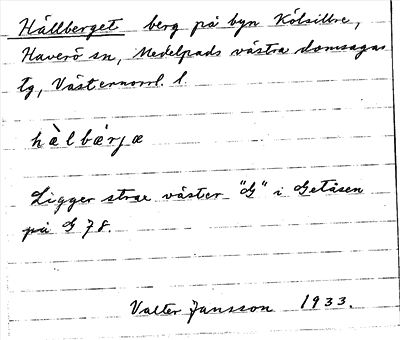 Hållberget berg på byn Kölsillre,
Haverö sn, Medelpads västra domsagas
tg, Västernorrl. l.
hàlbærjæ
Ligger strax väster "G" i Getåsen
på G 78.
Valter Jansson 1933.